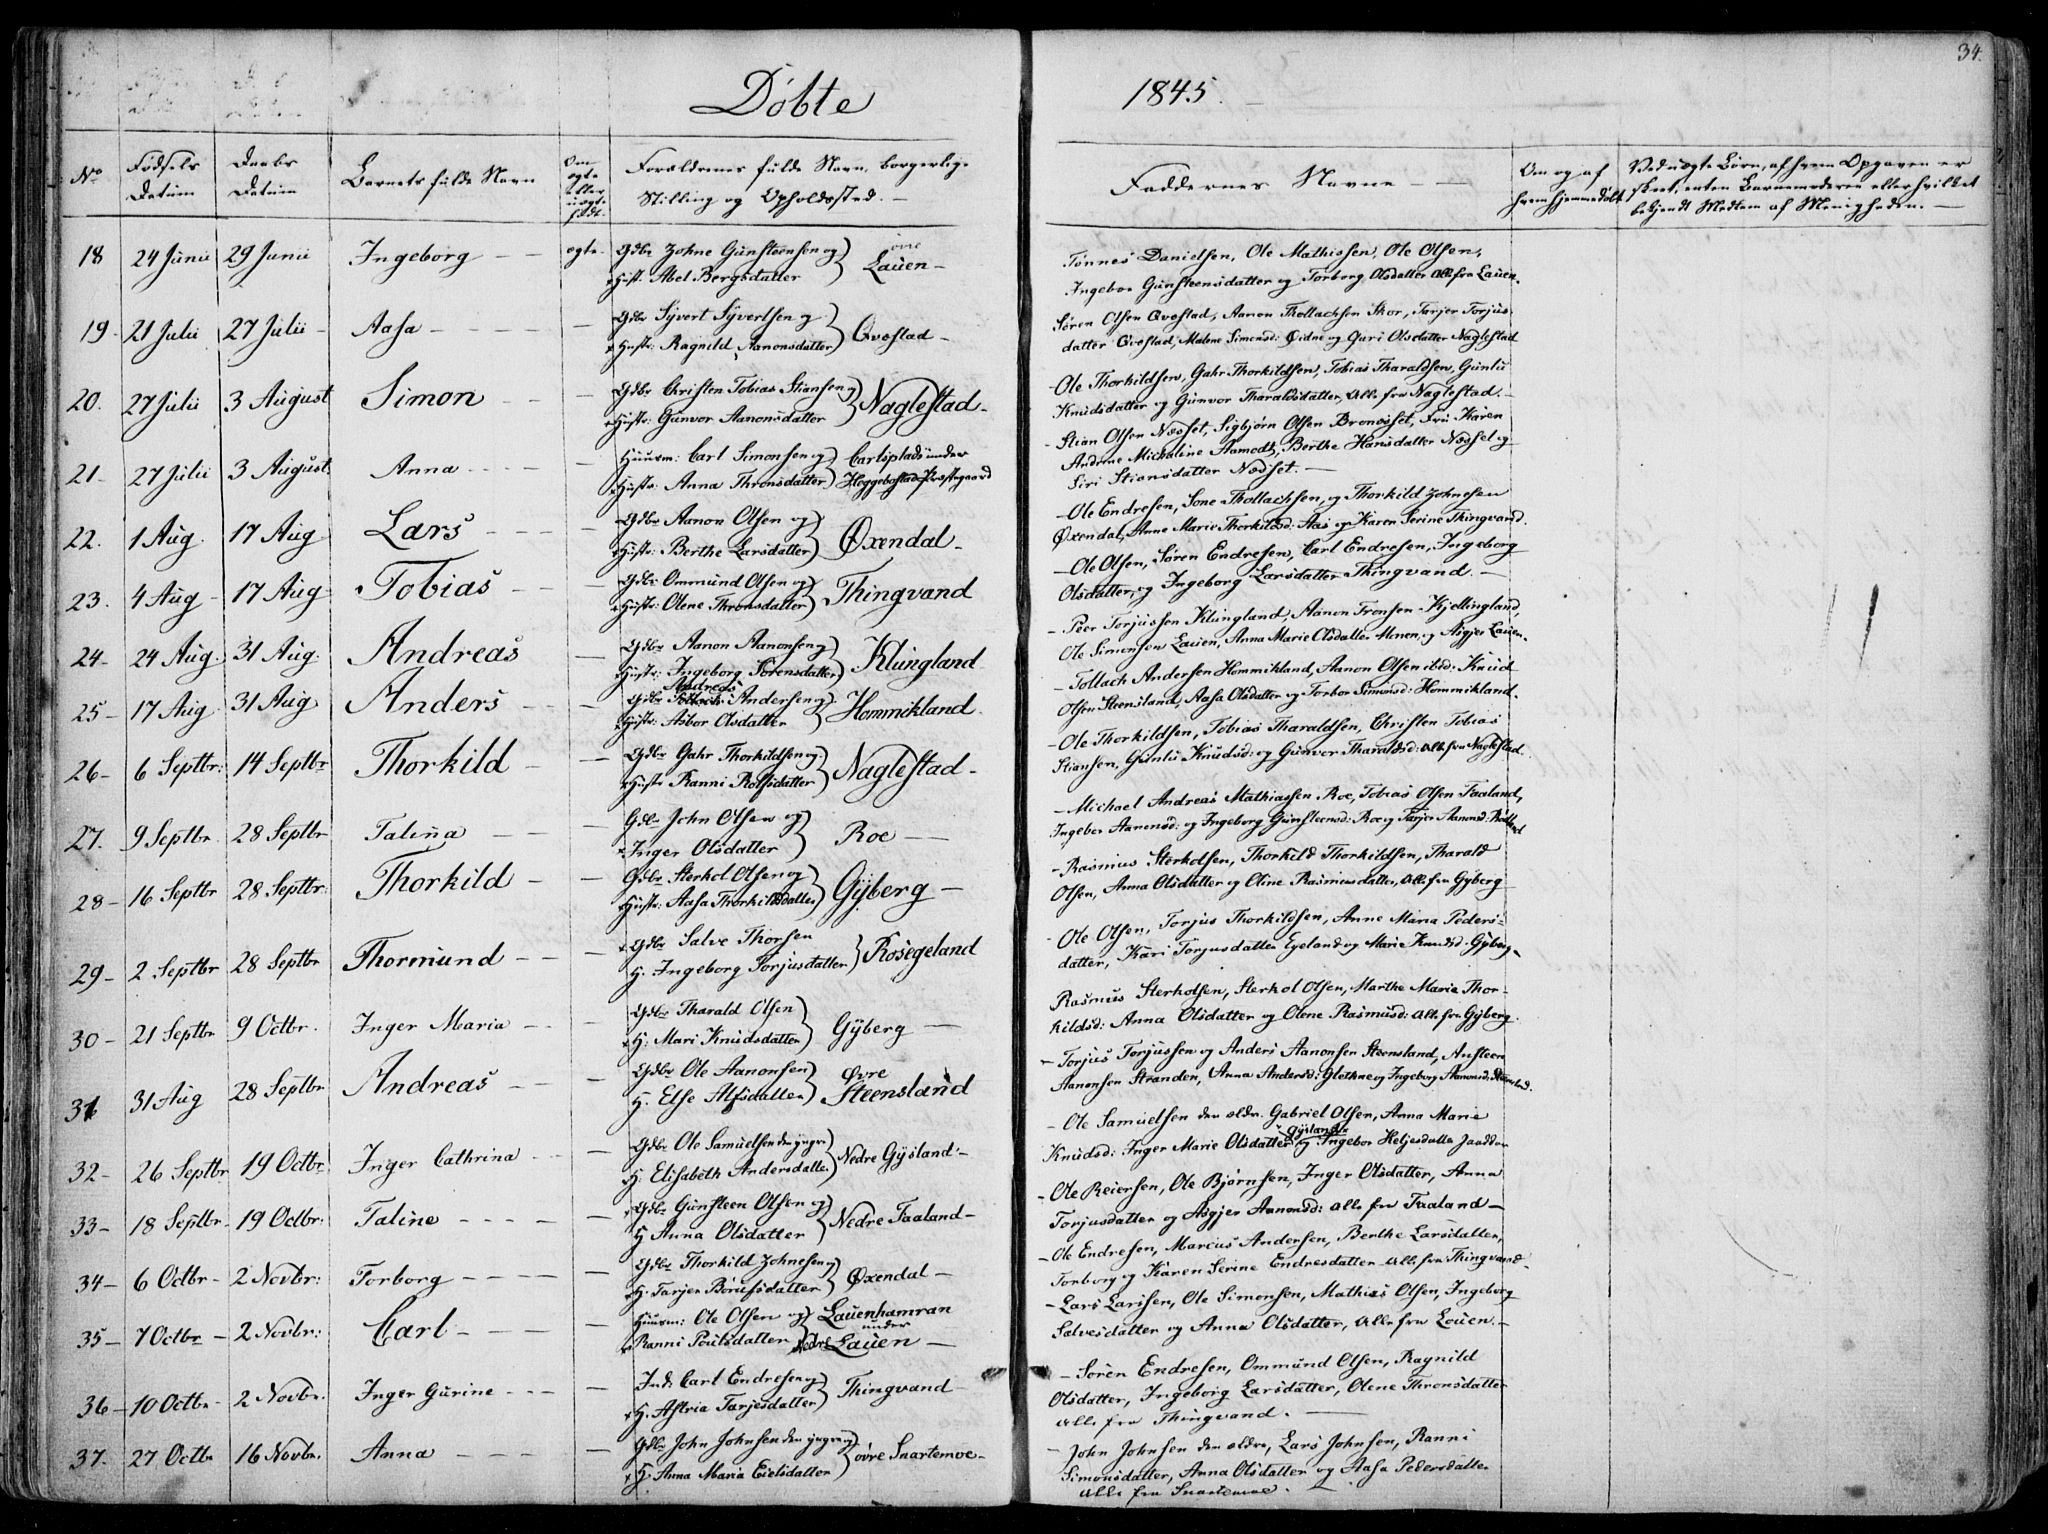 34.
Døbte 1845.
No
Fødsels Datum
Daabs Datum
Barnets fulde Navn
Om ægte eller uægte født.
Forældrenes fulde Navn, borgerlige Stilling og Opholdssted. —
Faddernes Navne —
Om og af hvem hjemmedøbt
Ved uægte Børn, af hvem Opgaven er skeet, enten Barnemoderen eller hvilket bekjendt Medlem af Menigheden. —
18 24 Junii 29 Junii Ingeborg — ægte.
Gdbr Johne Gunsteensen og
Hustr: Abel Bergsdatter
øvre Lauen —
Tønnes Danielsen, Ole Mathissen, Ole Olsen,
Ingebor Gunsteensdatter og Torborg Olsdatter alle fra Lauen.
19 21 Julii 27 Julii Aasa —
Gdbr Syvert Syvertsen og
Hustr: Ragnild Aanonsdatter
Qvostad —
Søren Olsen Qvostad, Aanon Thollachsen Skor, Tarjer Torjus-
datter Qvostad, Malene Simonsd: Øidne og Guri Olsdatter Naglestad
20. 27 Julii 3 August Simon —
Gdbr Christen Tobias Stiansen og
Hustr: Gunvor Aanonsdatter
Naglestad —
Ole Thorkildsen, Gahr Thorkildsen, Tobias Tharaldsen, Gunlu
Knudsdatter og Gunvor Tharaldsdatter, alle fra Naglestad.
21 27 Julii 3 August. Anna —
Huusm: Carl Simonsen og
Hustr: Anna Thronsdatter
Carlsplads under
Heggebostad Præstegaard
Stian Olsen Nødset, Sigbjørn Olsen Bronøsset, Fru Karen
Andrine Michaline Aamodt, Berthe Hansdatter Nødset og
Siri Stiansdatter Nødset. —
22. 1 Aug. 17 Aug Lars —
Gdbr Aanon Olsen og
Hustr: Berthe Larsdatter
Øxendal —
Ole Endresen, Sone Thollachsen, og Thorkild Johnesen
Øxendal, Anne Marie Thorkildsd: Aas og Karen Serine Thingvand.
23. 4 Aug 17 Aug Tobias —
Gdbr Ommund Olsen og
Hustr: Olene Thronsdatter
Thingvand
Ole Olsen, Søren Endresen, Carl Endresen, Ingeborg
Olsdatter, og Ingeborg Larsdatter Thingvand. —
24 24 Aug. 31 Aug. Andreas
Gdbr Aanon Aanonsen og
Hustr: Ingeborg Sørensdatter
Klungland
Peer Torjussen Klungland, Aanon Tronsen Kjellingland,
Ole Simonsen Lauen, Anna Marie Olsdatter Monen, og Asgjer Lauen.
25 17 Aug. 31 Aug Anders —
Andreas
Gdbr Tollach Andersen og
Hustr: Asbor Olsdatter
Hommikland.
Tollach Andersen Hommikland, Aanon Olsen ibid: Knud
Olsen Steensland, Aasa Olsdatter og Torbor Simonsd: Hommikland.
26 6 Septbr: 14 Septbr Thorkild —
Gdbr Gahr Thorkildsen og
Hustr Ranni Rolfsdatter
Naglestad —
Ole Thorkildsen, Tobias Tharaldsen, Christen Tobias
Stiansen, Gunlu Knudsd: og Gunvor Tharaldsd: alle fra Naglestad.
27. 9 Septbr 28 Septbr Talina —
Gdbr John Olsen og
Inger Olsdatter
Roe —
Michael Andreas Mathiassen Roe, Tobias Olsen Faaland,
Ingebor Aanonsd: og Ingeborg Gunsteensd: Roe og Tarjer Aanonsd:
28 16 Septbr 28 Septbr: Thorkild —
Gdbr Sterkol Olsen og
Hustr: Aasa Thorkildsdatter
Gyberg —
Rasmus Sterkolsen, Thorkild Thorkildsen, Tharald
Olsen, Anna Olsdatter og Oline Rasmusdatter, alle fra Gyberg
29 2 Septbr 28 Septbr Thormund —
Gdbr Salve Thorsen
H. Ingeborg Torjusdatter
Rosegeland
Ole Olsen, Torjus Thorkildsen, Anne Maria Peders-
datter, Kari Torjusdatter Egeland og Marie Knudsd: Gyberg
30 21 Septbr 9 Octbr. Inger Maria —
Gdbr Tharald Olsen
H: Mari Knudsdatter
Gyberg —
Rasmus Sterkolsen, Sterkol Olsen, Marthe Marie Thor-
kildsd: Anna Olsdatter og Olene Rasmusd: alle fra Gyberg.
31 31 Aug 28 Septbr Andreas —
Gdbr Ole Aanonsen
H. Else Alfsdatter
Øvre Steensland
Torjus Torjussen og Anders Aanonsen Steensland, Ansteen
Aanonsen Stranden, Anna Andersd: Glethne og Ingeborg Aanonsd: Steensland.
32 26 Septbr 19 Octbr Inger Cathrina —
Gdbr Ole Samuelsen den yngre
H: Elisabeth Andersdatter
Nedre Gysland —
Ole Samuelsen den ældre, Gabriel Olsen, Anna Marie
Knudsd: Inger Marie Olsdatter Gysland og Ingebor Heljesdatter Jaaddan
33 18 Septbr 19 Octbr: Taline —
Gdbr Gunsteen Olsen og
H Anna Olsdatter
Nedre Faaland —
Ole Reiersen, Ole Bjørnsen, Inger Olsdatter, Anna
Torjusdatter og Asgjer Aanonsd: alle fra Faaland —
34 6 Octbr 2 Novbr: Torborg —
Gdbr Thorkild Johnesen og
H. Tarjer Børufsdatter
Øxendal —
Ole Endresen, Marcus Andersen, Berthe Larsdatter,
Torborg og Karen Serine Endresdatter alle fra Thingvand —
35 7 Octbr 2 Novbr: Carl —
Huusm: Ole Olsen og
Ranni Poulsdatter
Lauenhamran
under
Nedre Lauen —
Lars Larssen, Ole Simonsen, Mathias Olsen, Ingeborg
Salvesdatter og Anna Olsdatter, alle fra Louen. —
36 10 Octbr 2 Novbr. Inger Gurine —
Ind: Carl Endresen og
H. Astria Tarjesdatter
Thingvand
Søren Endresen, Ommund Olsen, Ragnild
Olsdatter, Ingeborg Larsdatter, Olene Thronsdatter
alle fra Thingvand. —
37. 27 Octbr 16 Novbr. Anna —
Gdbr John Johnsen den yngre og
H: Anna Maria Eielsdatter
øvre Snartemoe —
John Johnsen den ældre, Lars Johnsen, Ranni
Simonsdatter, Anna Olsdatter og Aasa Pedersdatter
alle fra Snartemoe. —